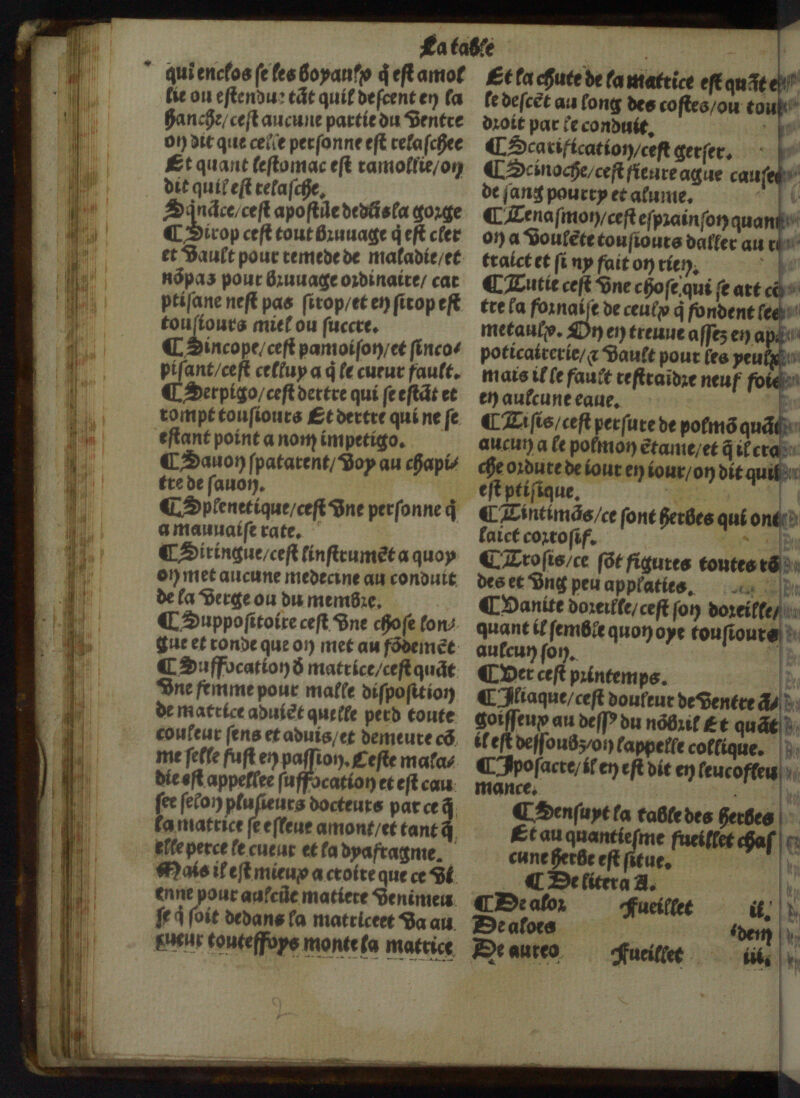 La table
qui enclos se les boyaulx q̃ est amol
lie ou estendu: tãt quil descent en la
hanche/cest aucune partie du ventre
on dit que celle personne est relaschee
Et quant lestomac est ramollie/on
dit quil est relasche.
Sqnãce/cest apostũe dedãs la gorge
¶Sirop cest tout bruuage q̃ est cler
et vault pour remede de maladie/et
nõpas pour bruuage ordinaire/ car
ptisane nest pas sirop/et en sirop est
tousiours miel ou succre.
¶Sincope/cest pamoison/et sinco/
pisant/cest celluy a q̃ le cueur fault.
¶Serpigo/cest dertre qui se estãt et
rompt tousiours Et dertre qui ne se
estant point a nom impetigo.
¶Sauon spatarent/voy au chapi/
tre de sauon.
¶Splenetique/cest vne personne q̃
a mauuaise rate.
¶Siringue/cest linstrumẽt a quoy
on met aucune medecine au conduit
de la verge ou du membre.
¶Suppositoire cest vne chose lon/
gue et ronde que on met au fõdemẽt
¶Suffocation õ matrice/cest quãt
vne femme pour malle disposition
de matrice aduiẽt quelle perd toute
couleur sens et aduis/et demeure cõ
me selle fust en passion. Ceste mala/
die est appellee suffocation et est cau
see selon plusieurs docteurs par ce q̃
la matrice se eslleue amont/et tant q̃
elle perce le cueur et la dyafragme.
Mais il est mieux a croire que ce vi
enne pour aulcũe matiere venimeu
se q̃ soit dedans la matriceet va au
cueur touteffoys monte la matrice
Et la chute de la matrice est quãt e
le descẽt au long des costes/ou tou
droit par le conduit.
¶Scarification/cest gerser.
¶Scinoche/cest fieure ague causee
de sang pourry et alume.
¶Tenasmon/cest esprainson quant
on a voulẽte tousiours daller au re
traict et si ny fait on rien.
¶Tutie cest vne chose qui se art cõ
tre la fornaise de ceulx q̃ fondent les
metaulx. On en treuue assez en ap
poticairerie/⁊ vault pour les yeulx
mais il le fault restraidre neuf fois
en aulcune eaue.
¶Tisis/cest persure de polmõ quãt
aucun a le polmon ẽtame/et q̃ il cra
che ordure de iour en iour/on dit quil
est ptisique.
¶Tintimãs/ce sont herbes qui ont
laict corrosif.
¶Trosis/ce sõt figures toutes rõ
des et vng peu applaties.
¶Vanite doreille/cest son doreille/
quant il semble quon oye tousiours
aulcun son.
¶Ver cest printemps.
¶Iliaque/cest douleur de ventre ã/
goisseux au dessꝰ du nõbril Et quãt
il est dessoubz/on lappelle collique.
¶Ipofacte/il en est dit en leucofleu
mance.
¶Sensuyt la table des herbes
Et au quantiesme fueillet chas
cune herbe est situe.
¶De litera A.
¶De alor fueillet ii.
De aloes idem
De aureo fueillet iii.